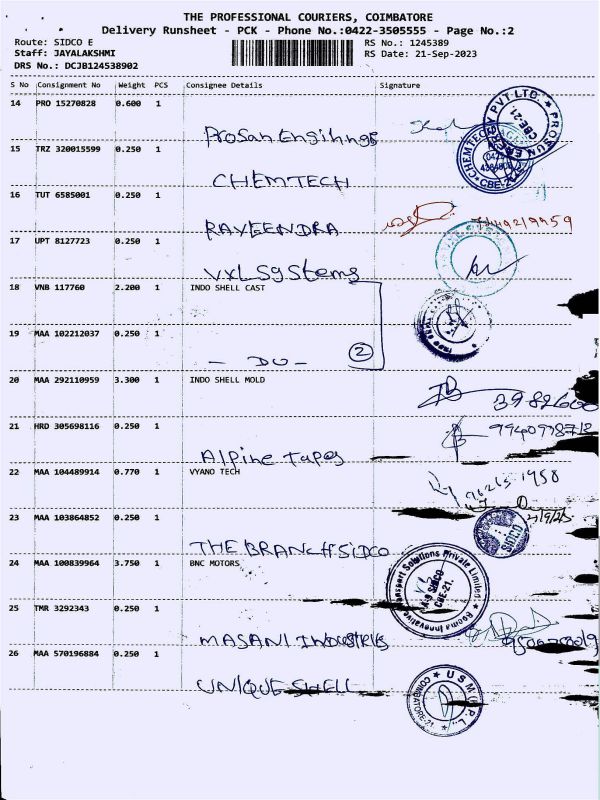 THE PROFESSIONAL COURIERS, COIMBATORE
Delivery Runsheet - PCK - Phone No.:0422-3505555 - Page No.:2
Route: SIDCO E
Staff: JAYALAKSHMI
DRS No.: DCJB124538902
RS No.: 1245389
RS Date: 21-Sep-2023
S No Consignment No Weight PCS Consignee Details Signature
14 PRO 15270828 0.600 1
Prosan Engihngs
15 TRZ 320015599 0.250 1
CHEMTECH
16 TUT 6585001 0.250 1
RAVEENDRA
17 UPT 8127723 0.250 1
VXL SYStems
18 VNB 117760 2.200 1 INDO SHELL CAST
19 MAA 102212037 0.250 1
- DO - 2
20 MAA 292110959 3.300 1 INDO SHELL MOLD
21 HRD 305698116 0.250 1
Alpine tapes
22 MAA 104489914 0.770 1 VYANO TECH
23 MAA 103864852 0.250 1
THE BRANCH SIDCO
SIDCO
24 MAA 100839964 3.750 1 BNC MOTORS
Rooma Innovative Transport Solutions Private Limited
A-9 SIDCO
CBE-21.
25 TMR 3292343 0.250 1
MASANI INDUSTRIES
26 MAA 570196884 0.250 1
UNIQUE SHELL
U S M C P L
COIMBATORE-21